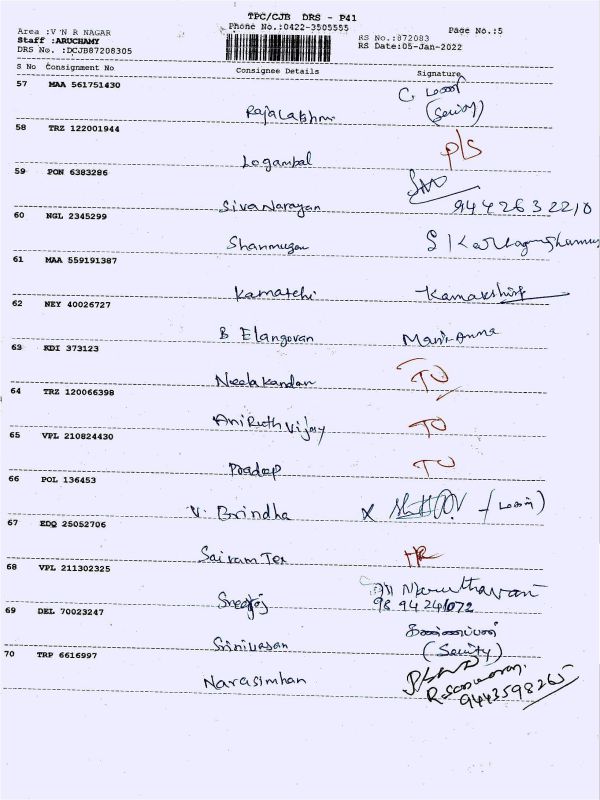 TPC/CJB DRS - P41
Phone No.:0422-3505555
Area :V N R NAGAR
Staff :ARUCHAMY
DRS No. :DCJB87208305
RS No.:872083
RS Date:05-Jan-2022
Page No.:5
S No Consignment No Consignee Details Signature
57 MAA 561751430
Rajalakshmi
58 TRZ 122001944
Logambal P/S
59 PON 6383286
SivaNarayan 9442632210
60 NGL 2345299
Shanmugam
61 MAA 559191387
Kamatchi
62 NEY 40026727
B Elangovan
63 KDI 373123
Neelakandan TO
64 TRZ 120066398
AniRuthVijay TO
65 VPL 210824430
Pradeep TO
66 POL 136453
V. Brindha
67 EDQ 25052706
Sairam Tex
68 VPL 211302325
Maruthavan
9894241072
69 DEL 70023247
Srinivasan
70 TRP 6616997
Narasimhan
9443598265